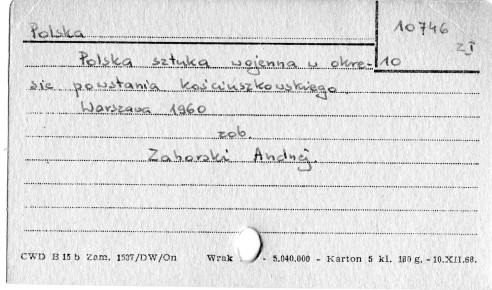 Polska
10746
zI
Polska sztuka wojenna w okre-
10
sie powstania kościuszkowskiego
Warszawa 1960
zob.
Zahorski Andrzej.
CWD B 15 b Zam. 1537/DW/On Wrak - 5.040.000 - Karton 5 kl. 180 g. - 10.XII.68.